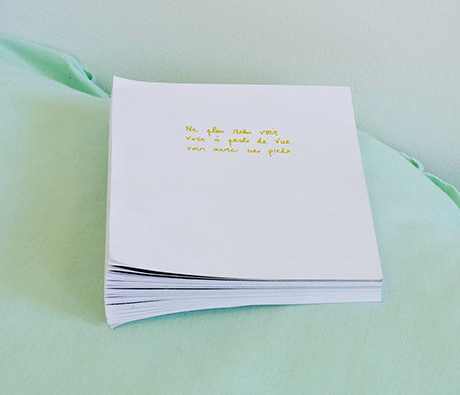 Ne plus rien voir
voir à perte de vue
voir avec ses pieds